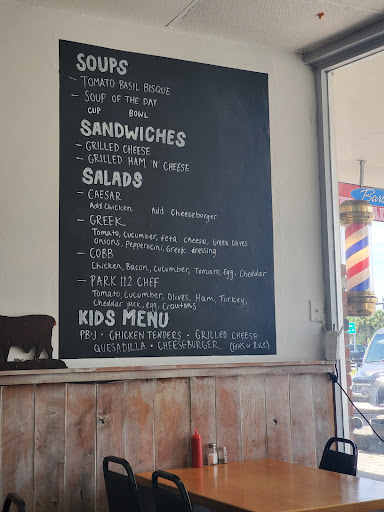 SOUPS
- TOMATO BASIL BISQUE
- SOUP OF THE DAY
CUP BOWL
SANDWICHES
- GRILLED CHEESE
- GRILLED HAM 'N' CHEESE
SALADS
- CAESAR
Add Chicken Add Cheeseburger
- GREEK
Tomato, Cucumber, Feta Cheese, Greek Olives
Onions, Pepperocini, Greek dressing
- COBB
Chicken, Bacon, Cucumber, Tomato, Egg, Cheddar
- PARK 112 CHEF
Tomato, Cucumber, Olives, Ham, Turkey,
Cheddar jack, egg, Croutons
KIDS MENU
PB·J · CHICKEN TENDERS · GRILLED CHEESE
QUESADILLA · CHEESEBURGER